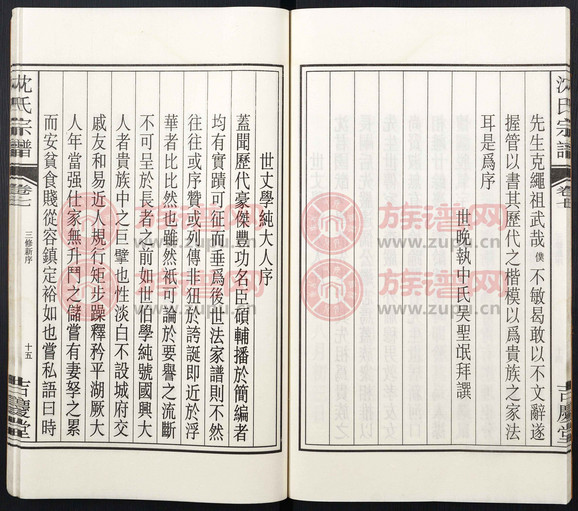 沈氏宗譜
卷七
吉慶堂
先生克繩祖武哉僕不敏曷敢以不文辭遂
握管以書其歷代之楷模以爲貴族之家法
耳是爲序
世晚執中氏吳聖氓拜譔
世丈學純大人序
蓋聞歷代豪傑豐功名臣碩輔播於簡編者
均有實蹟可征而垂爲後世法家譜則不然
往往或序贊或列傳非狃於誇誕即近於浮
華者比比然也雖然祇可論於要譽之流斷
不可呈於長者之前如世伯學純號國興大
人者貴族中之巨擘也性淡白不設城府交
戚友和易近人規行矩步躁釋矜平湖厥大
人年當强仕家無升鬥之儲嘗有妻孥之累
而安貧食賤從容鎮定裕如也嘗私語曰時
沈氏宗譜
卷七
三修新序
十五
吉慶堂
族谱网
www.zupu.cn
族谱网
www.zupu.cn